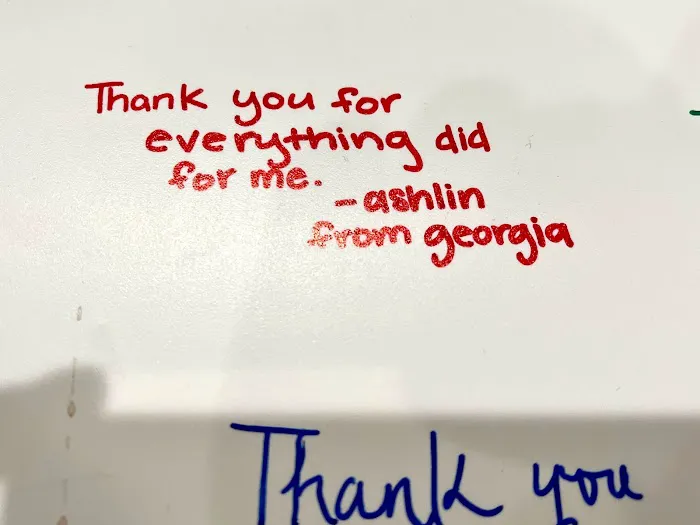 Thank you for
everything did
for me.
-ashlin
from georgia
Thank you